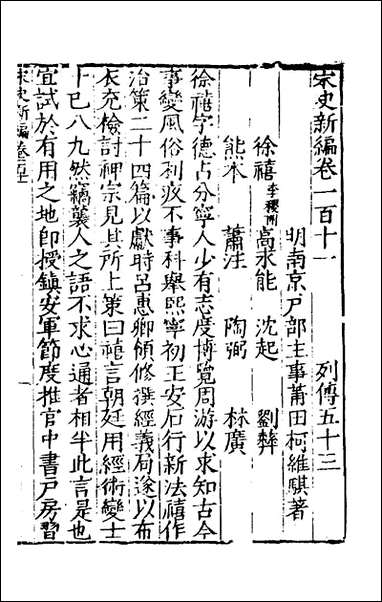 宋史新編卷一百十一　列傳五十三
明南京戸部主事莆田柯維騏著
徐禧李稷附　高永能　沈起　劉彝
熊本　蕭注　陶弼　林廣
徐禧字德占分寧人少有志度博覽周游以求知古今
事變風俗利疚不事科舉熙寧初王安石行新法禧作
治策二十四篇以獻時呂惠卿領修撰經義局遂以布
衣充檢討神宗見其所上策曰禧言朝廷用經術變士
十巳八九然竊襲人之語不求心通者相半此言是也
宜試於有用之地即授鎮安軍節度推官中書戸房習
宋史新編卷